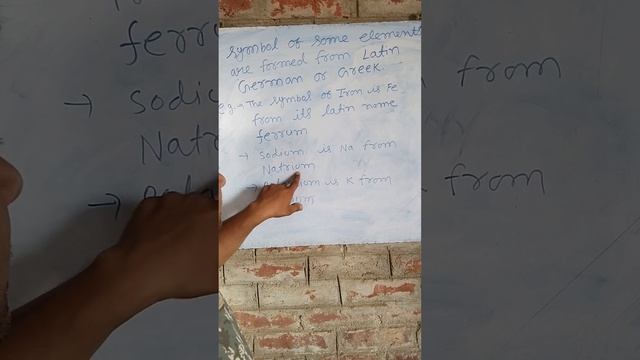 Symbol of some element
are formed from Latin
German or Greek.
e.g. → The symbol of Iron is Fe
from its latin name
ferrum
→ Sodium is Na from
Natrium
→ is K from